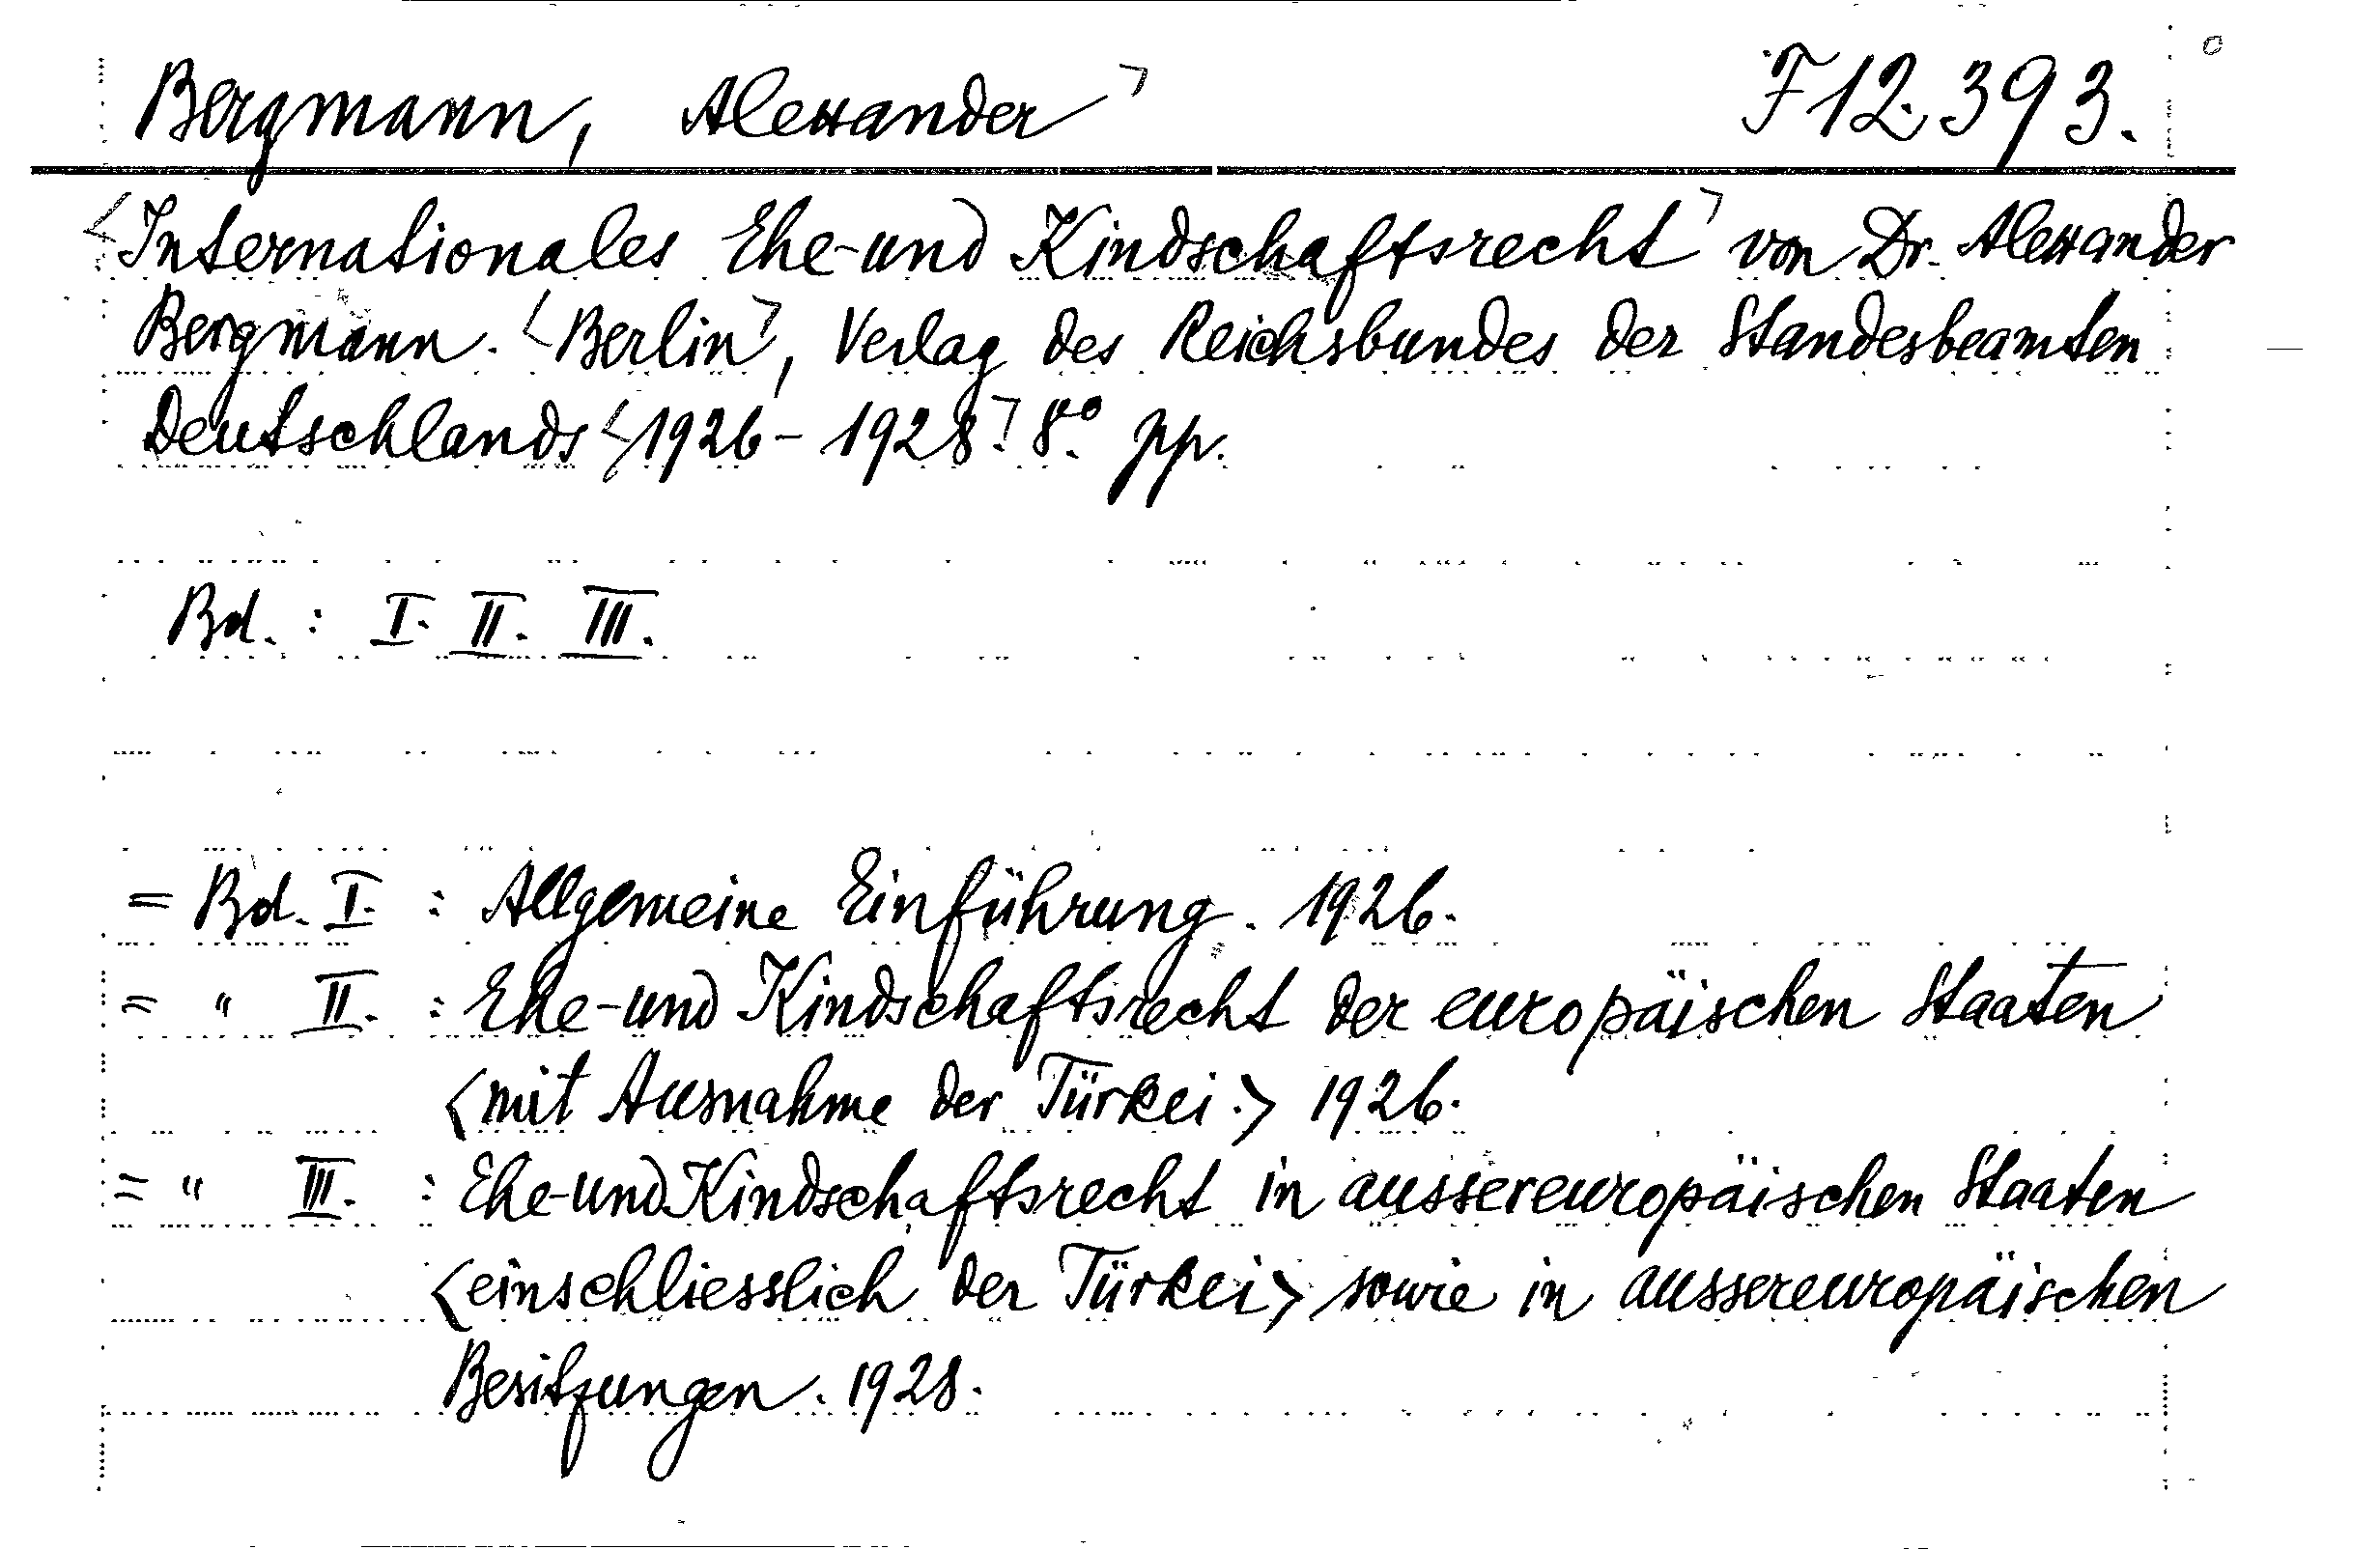 Bergmann, Alexander F 12.393.
Internationales Ehe-und Kindschaftsrecht von Dr. Alexander
Bergmann. Berlin, Verlag des Reichsbundes der Standesbeamten
Deutschlands 1926-1928. 8° pp.
Bd. : I. II. III.
= Bd. I. : Allgemeine Einführung. 1926.
= " II. : Ehe-und Kindschaftsrecht der europäischen Staaten
<mit Ausnahme der Türkei.> 1926.
= " III. : Ehe-und Kindschaftsrecht in aussereuropäischen Staaten
<einschliesslich der Türkei> sowie in aussereuropäischen
Besitzungen. 1928.